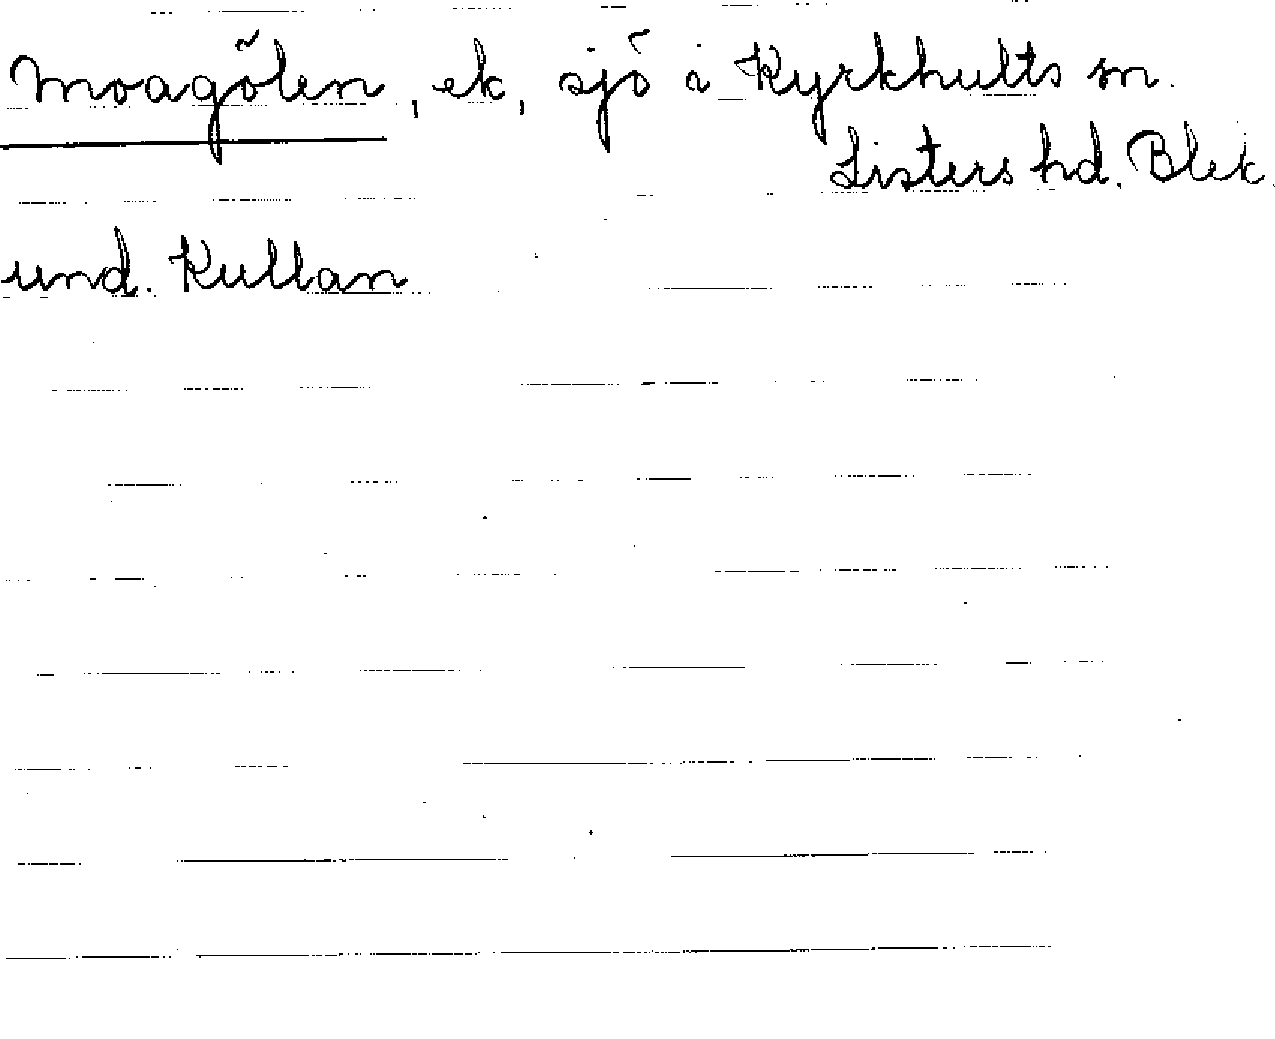 Moagölen, ek, sjö i Kyrkhults sn.
Listers hd. Blek.
und. Kullan